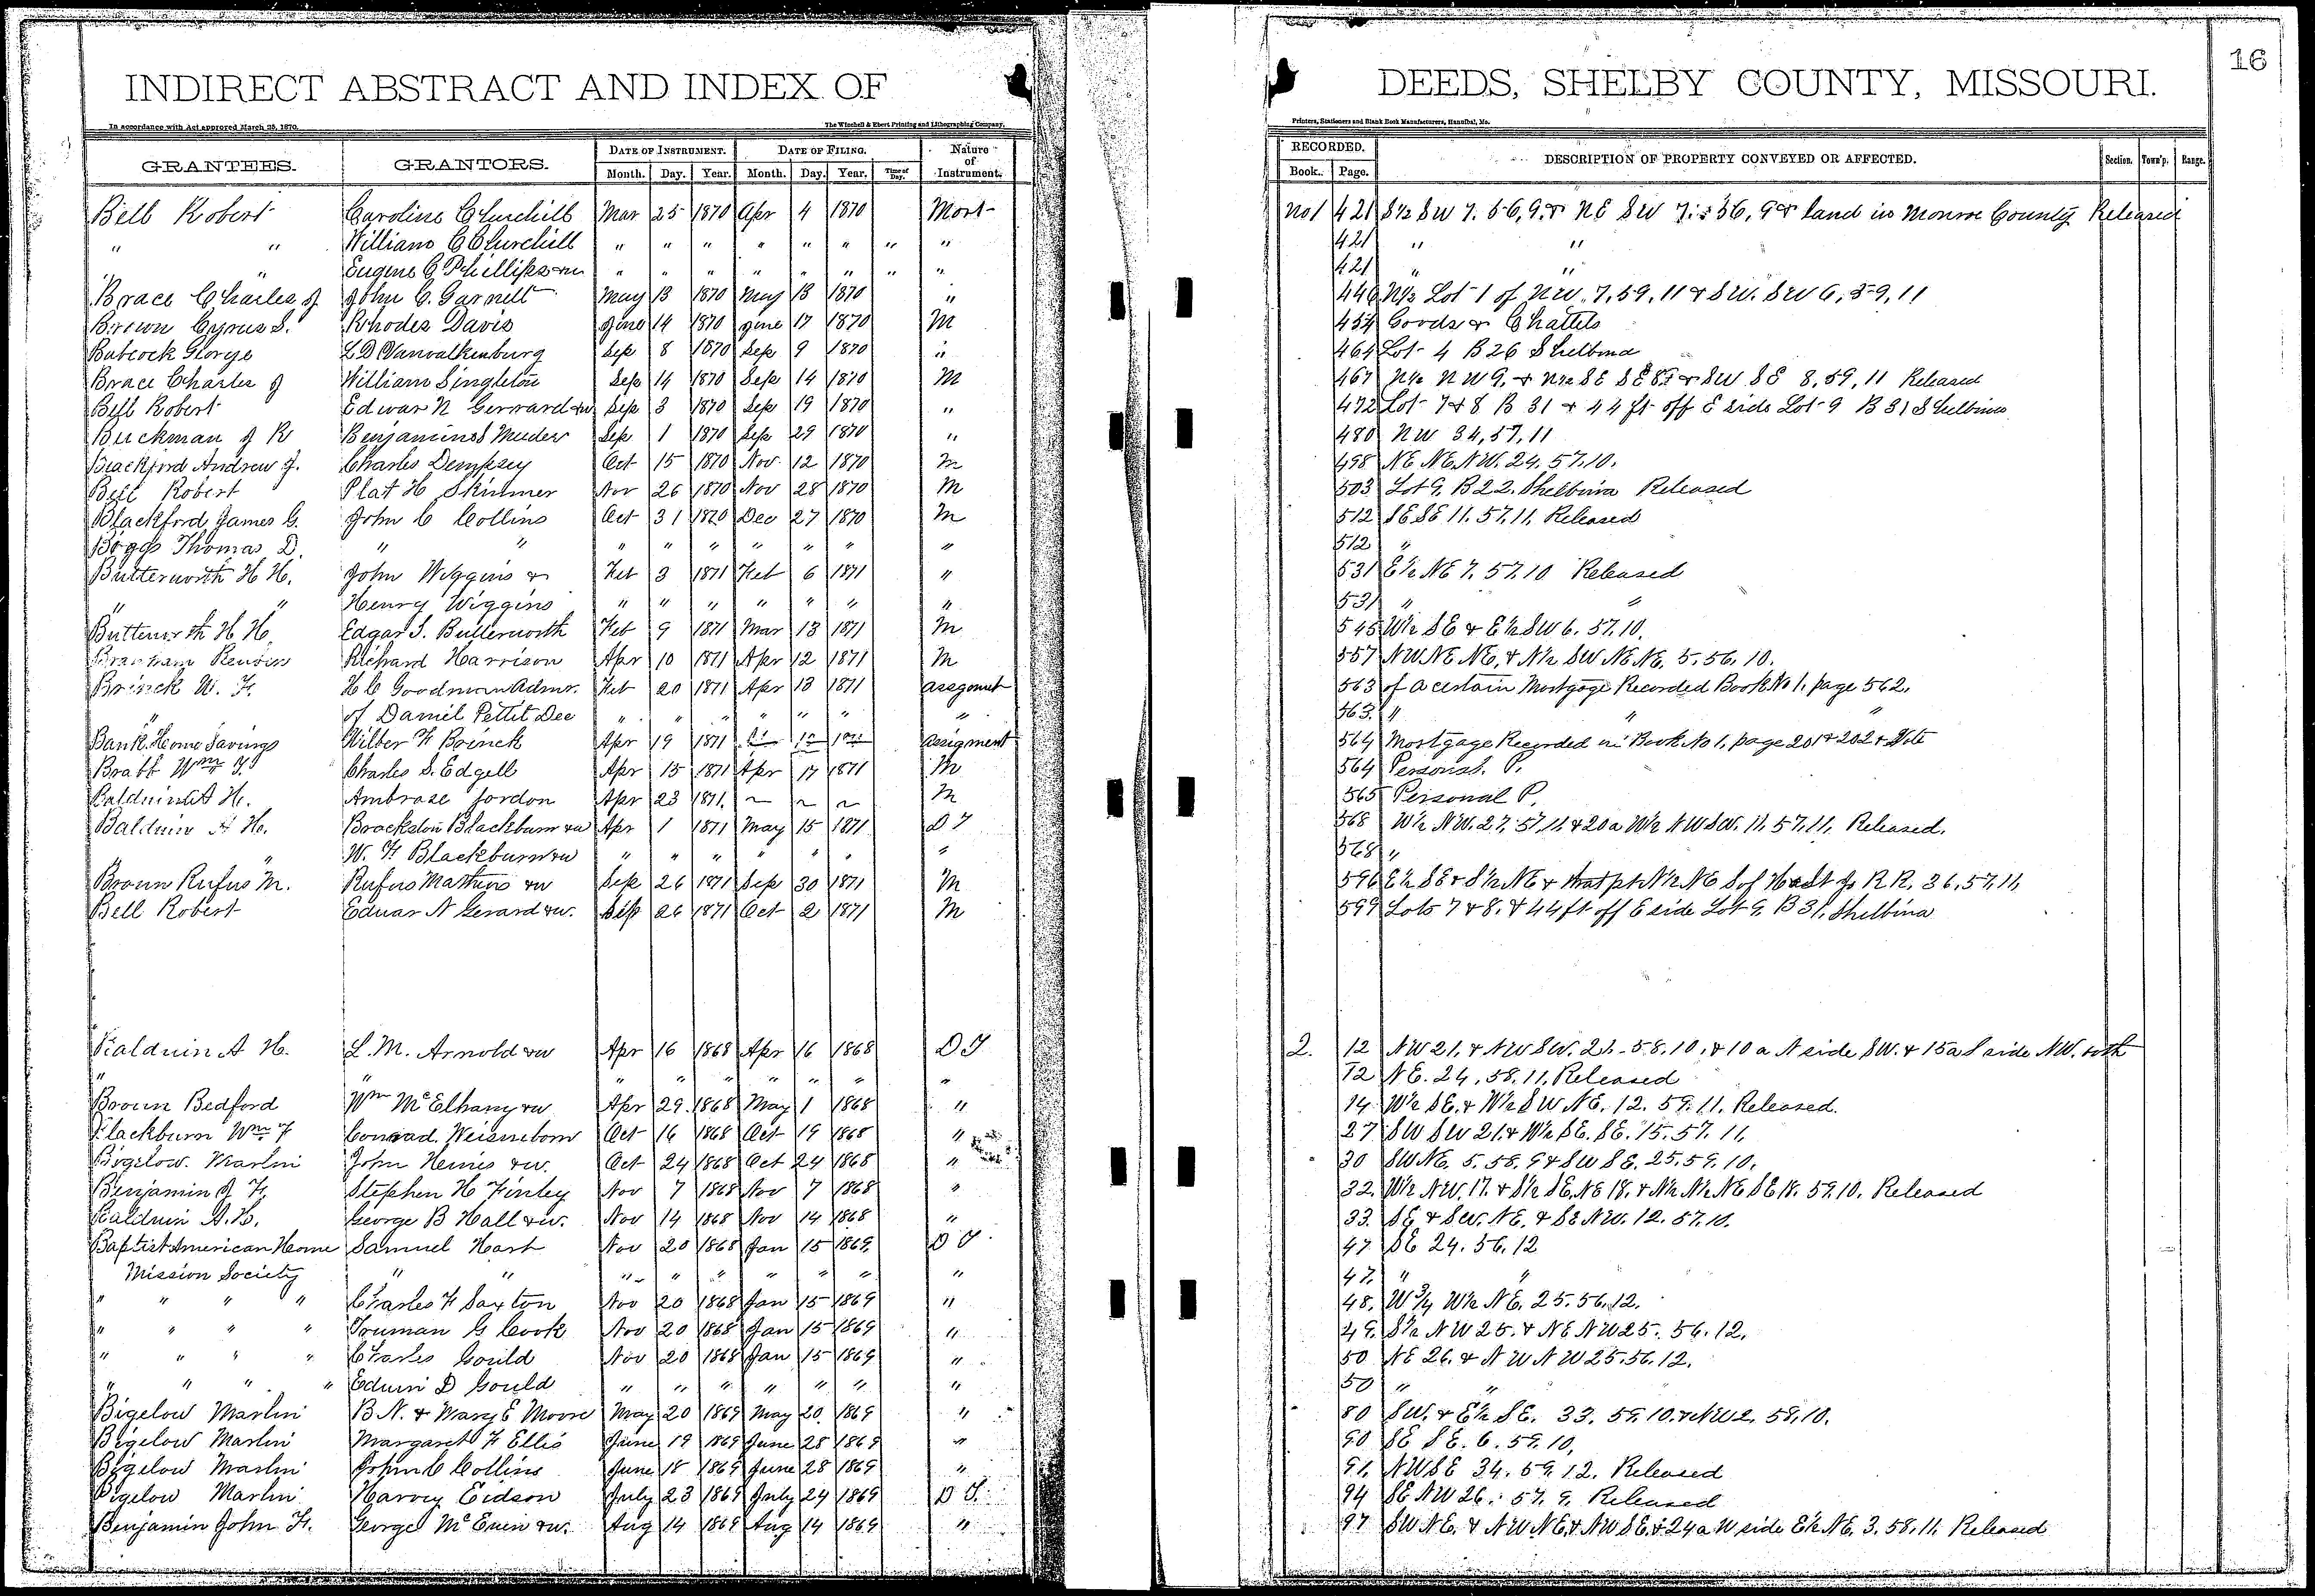 INDIRECT ABSTRACT AND INDEX OF DEEDS, SHELBY COUNTY, MISSOURI. 16
In accordance with Act approved March 25, 1870. The Winchell & Ebert Printing and Lithographing Company, Printers, Stationers and Blank Book Manufacturers, Hannibal, Mo.
GRANTEES. GRANTORS. DATE OF INSTRUMENT. DATE OF FILING. Nature of Instrument. RECORDED. DESCRIPTION OF PROPERTY CONVEYED OR AFFECTED. Section. Town'p. Range.
Month. Day. Year. Month. Day. Year. Time of Day. Book. Page.
Bell Robert Caroline Churchill Mar 25 1870 Apr 4 1870 Mort No 1 421 S½ SW 7. 56, 9, & NE SW 7. 56, 9 & land in Monroe County Released
" " William C Churchill " " " " " " " " 421 " "
" Eugene C Phillips " " " " " " " " 421 " "
Brace Charles J John C. Garnett May 13 1870 May 13 1870 " 446 N½ Lot 1 of NW. 7, 59, 11 & SW. SW 6, 59, 11
Brown Cyrus S. Rhodes Davis June 14 1870 June 17 1870 M 454 Goods & Chattels
Babcock George L D Vanvalkenburg Sep 8 1870 Sep 9 1870 " 464 Lot 4 B 26 Shelbina
Brace Charles J William Singleton Sep 14 1870 Sep 14 1870 M 467 N½ NW 9, & N½ SE SE 8 & SW SE 8, 59, 11 Released
Bell Robert Edwar N Gerrard &w Sep 3 1870 Sep 19 1870 " 472 Lot 7 & 8 B 31 & 44 ft off E side Lot 9 B 31 Shelbina
Buckman J R Benjamin Sep 1 1870 Sep 29 1870 " 480 NW 34, 57, 11
Blackford Andrew J. Charles Dempsey Oct 15 1870 Nov 12 1870 M 498 NE NE NW. 24. 57. 10.
Bell Robert Plat H Skinner Nov 26 1870 Nov 28 1870 M 503 Lot 9. B 22. Shelbina Released
Blackford James G. John C Collins Oct 31 1870 Dec 27 1870 M 512 SE SE 11. 57. 11, Released
Boggs Thomas D. " " " " " " " " " 512 "
Butterworth H H. John Wiggins & Feb 3 1871 Feb 6 1871 " 531 E½ NE 7. 57. 10 Released
" " Henry Wiggins " " " " " " " 531 " "
Butterworth H H. Edgar S. Butterworth Feb 9 1871 Mar 13 1871 M 545 W½ SE & E½ SW 6. 57. 10.
Richard Harrison Apr 10 1871 Apr 12 1871 M 557 NW NE NE, & N½ SW NE NE, 5. 56. 10.
Brinck W. F. H C Goodman Admr. Feb 20 1871 Apr 13 1871 assegomet 563 of a certain Mortgage Recorded Book No 1, page 562,
" of Daniel Pettit Dec " " " " " " " 563. " " "
Bank Home Savings Wilber F Brinck Apr 19 1871 assigment 564 Mortgage Recorded in Book No 1, page 201 & 202 & Note
Bratt Wm Y Charles S. Edgell Apr 15 1871 Apr 17 1871 M 564 Personal. P.
Baldwin A H. Ambrose Jordon Apr 23 1871, ~ ~ ~ M 565 Personal P.
Baldwin A H. Brockston Blackburn &w Apr 1 1871 May 15 1871 D T 568 W½ NW. 27, 57, 11, & 20 a W½ NW SW. 11, 57, 11, Released.
" W. F Blackburn &w " " " " " " " 568 "
Broun Rufus M. Rufus Mathews &w Sep 26 1871 Sep 30 1871 M 596 E½ SE & S½ NE & that pt N½ NE S of H & St Jo R R. 36, 57, 11,
Bell Robert Edwar N Gerard &w. Sep 26 1871 Oct 2 1871 M 599 Lots 7 & 8. & 44 ft off E side Lot 9, B 31, Shelbina
Baldwin A H. L. M. Arnold &w Apr 16 1868 Apr 16 1868 D T 2. 12 NW 21. & NW SW. 21. 58. 10, & 10 a N side SW. & 15 a S side NW. both
" " " " " " " " " 12 NE. 24, 58, 11, Released
Broun Bedford Wm McElhany &w Apr 29. 1868 May 1 1868 " 14 W½ SE. & W½ SW NE. 12. 59. 11. Released.
Blackburn Wm F Conrad Weisneborn Oct 16 1868 Oct 19 1868 " 27 SW SW 21. & W½ SE. SE. 15. 57. 11,
Bigelow. Martin John Heinis &w. Oct 24 1868 Oct 24 1868 " 30 SW NE. 5. 58. 9 & SW SE. 25. 59. 10.
Benjamin J F. Stephen H Finley Nov 7 1868 Nov 7 1868 " 32. W½ NW. 17. & S½ SE. NE 18. & N½ N½ NE SE 18. 59. 10. Released
Baldwin A. H. George B Hall &w. Nov 14 1868 Nov 14 1868 " 33. SE & SW. NE. & SE NW. 12. 57. 10.
Baptist American Home Samuel Hart Nov 20 1868 Jan 15 1869 D T. 47 SE 24. 56. 12
Mission Society " " " " " " " " " 47. " "
" " " " Charles F Saxton Nov 20 1868 Jan 15 1869 " 48. W¾ W½ NE. 25. 56. 12.
" " " " Truman G Cook Nov 20 1868 Jan 15 1869 " 49. S½ NW 25. & NE NW 25. 56. 12.
" " " " Charles Gould Nov 20 1868 Jan 15 1869 " 50 NE 26. & NW NW 25. 56. 12.
" " " " Edwin D Gould " " " " " " " 50 " "
Bigelow Martin B N. & Mary E Moore May 20 1869 May 20. 1869 " 80 SW. & E½ SE. 33. 59. 10. & NW 2. 58. 10.
Bigelow Martin Margaret F Ellis June 19 1869 June 28 1869 " 90 SE SE. 6. 59. 10,
Bigelow Martin John C Collins June 18 1869 June 28 1869 " 91. NW SE 34. 59. 12. Released
Bigelow Martin Harvey Eidson July 23 1869 July 24 1869 D T. 94 SE NW 26. 57. 9. Released
Benjamin John F. George McEuin &w. Aug 14 1869 Aug 14 1869 " 97 SW NE. & NW NE. & NW SE. & 24 a W side E½ NE. 3. 58. 11. Released